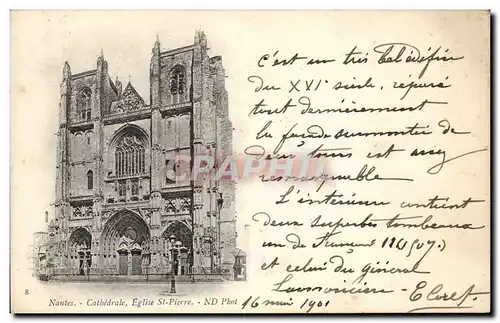 c'est un très bel édifice
du XVIe siècle, réparé
tout dernièrement
la façade surmontée de
deux tours est assez
remarquable
L'intérieur contient
deux superbes tombeaux
un de
et celui du général
Lamoricière -
16 mai 1901
8
Nantes. - Cathédrale, Église St-Pierre. - ND Phot
CPARAMA